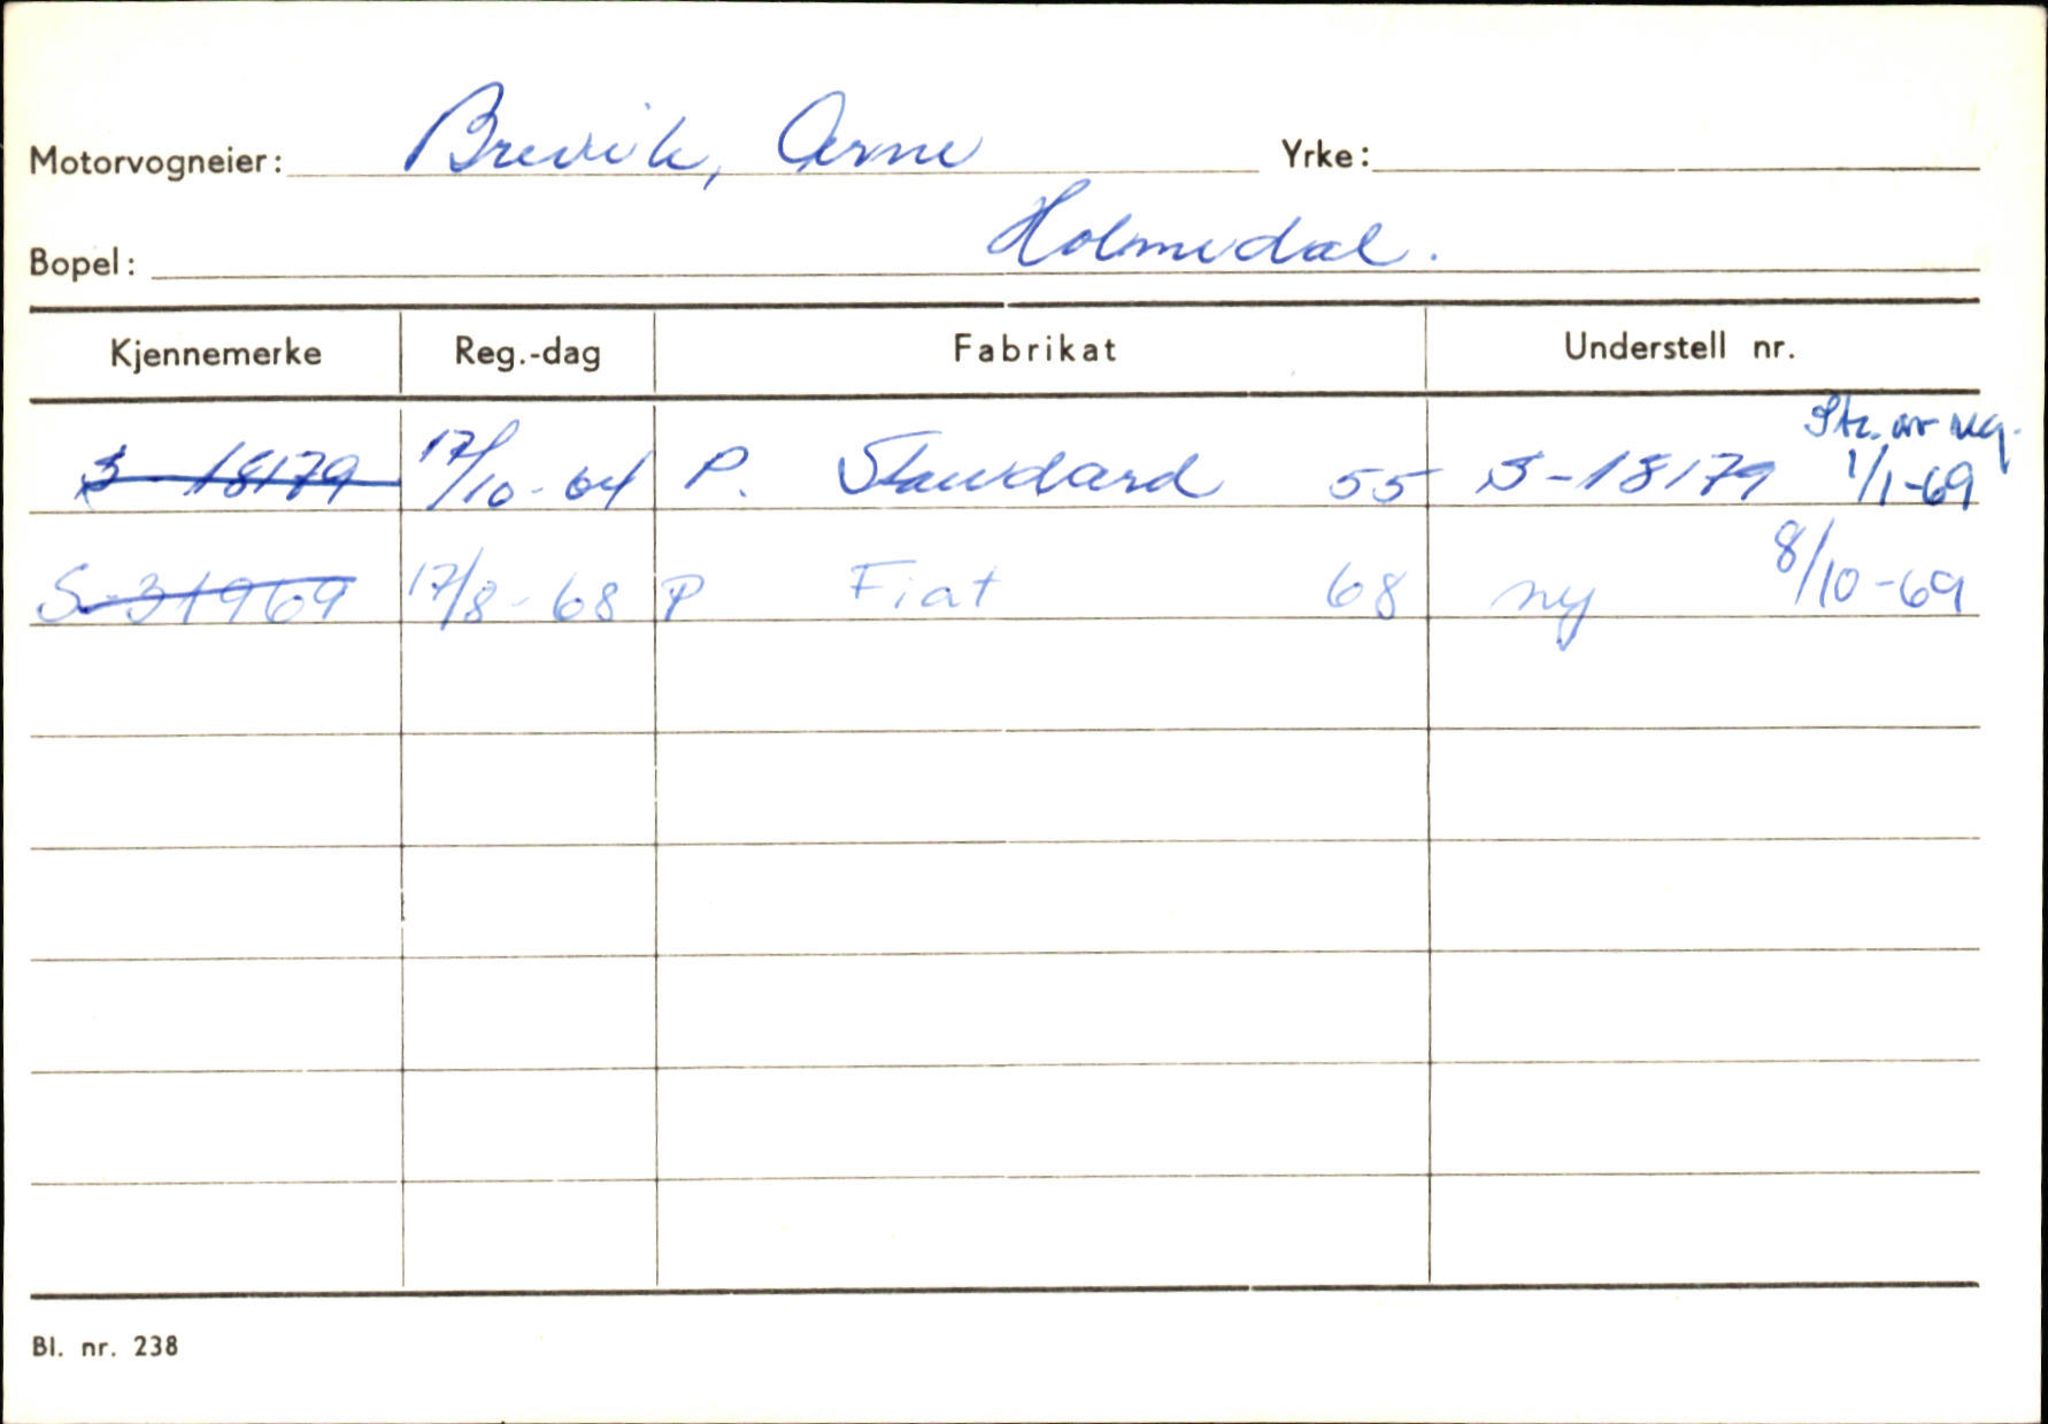 Motorvogneier: Brevik, Arne Yrke:
Bopel: Holmedal.
Kjennemerke Reg.-dag Fabrikat Understell nr.
S-18179 17/10-64 P. Standard 55 S-18179 Str. av reg. 1/1-69
S-31969 17/8-68 P Fiat 68 ny 8/10-69
Bl. nr. 238